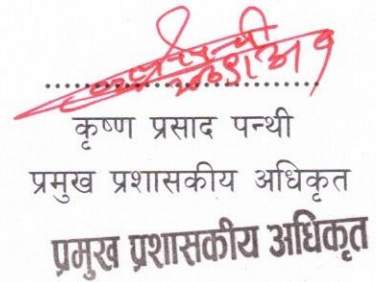 ........................
कृष्ण प्रसाद पन्थी
प्रमुख प्रशासकीय अधिकृत
प्रमुख प्रशासकीय अधिकृत